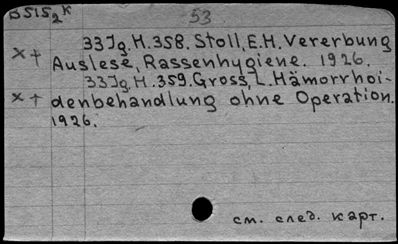 B515₂K
53
33Jg.H.358. Stoll, E.H. Vererbung
x + Auslese, Rassenhygiene. 1926.
33Jg.H.359. Gross, L. Hämorrhoi-
x + denbehandlung ohne Operation.
1926.
см. след. карт.